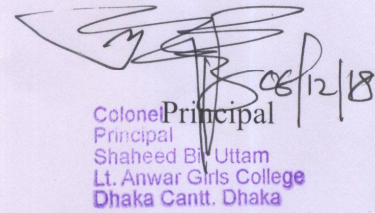 06/12/18
Principal
Colonel
Principal
Shaheed Bir Uttam
Lt. Anwar Girls College
Dhaka Cantt. Dhaka